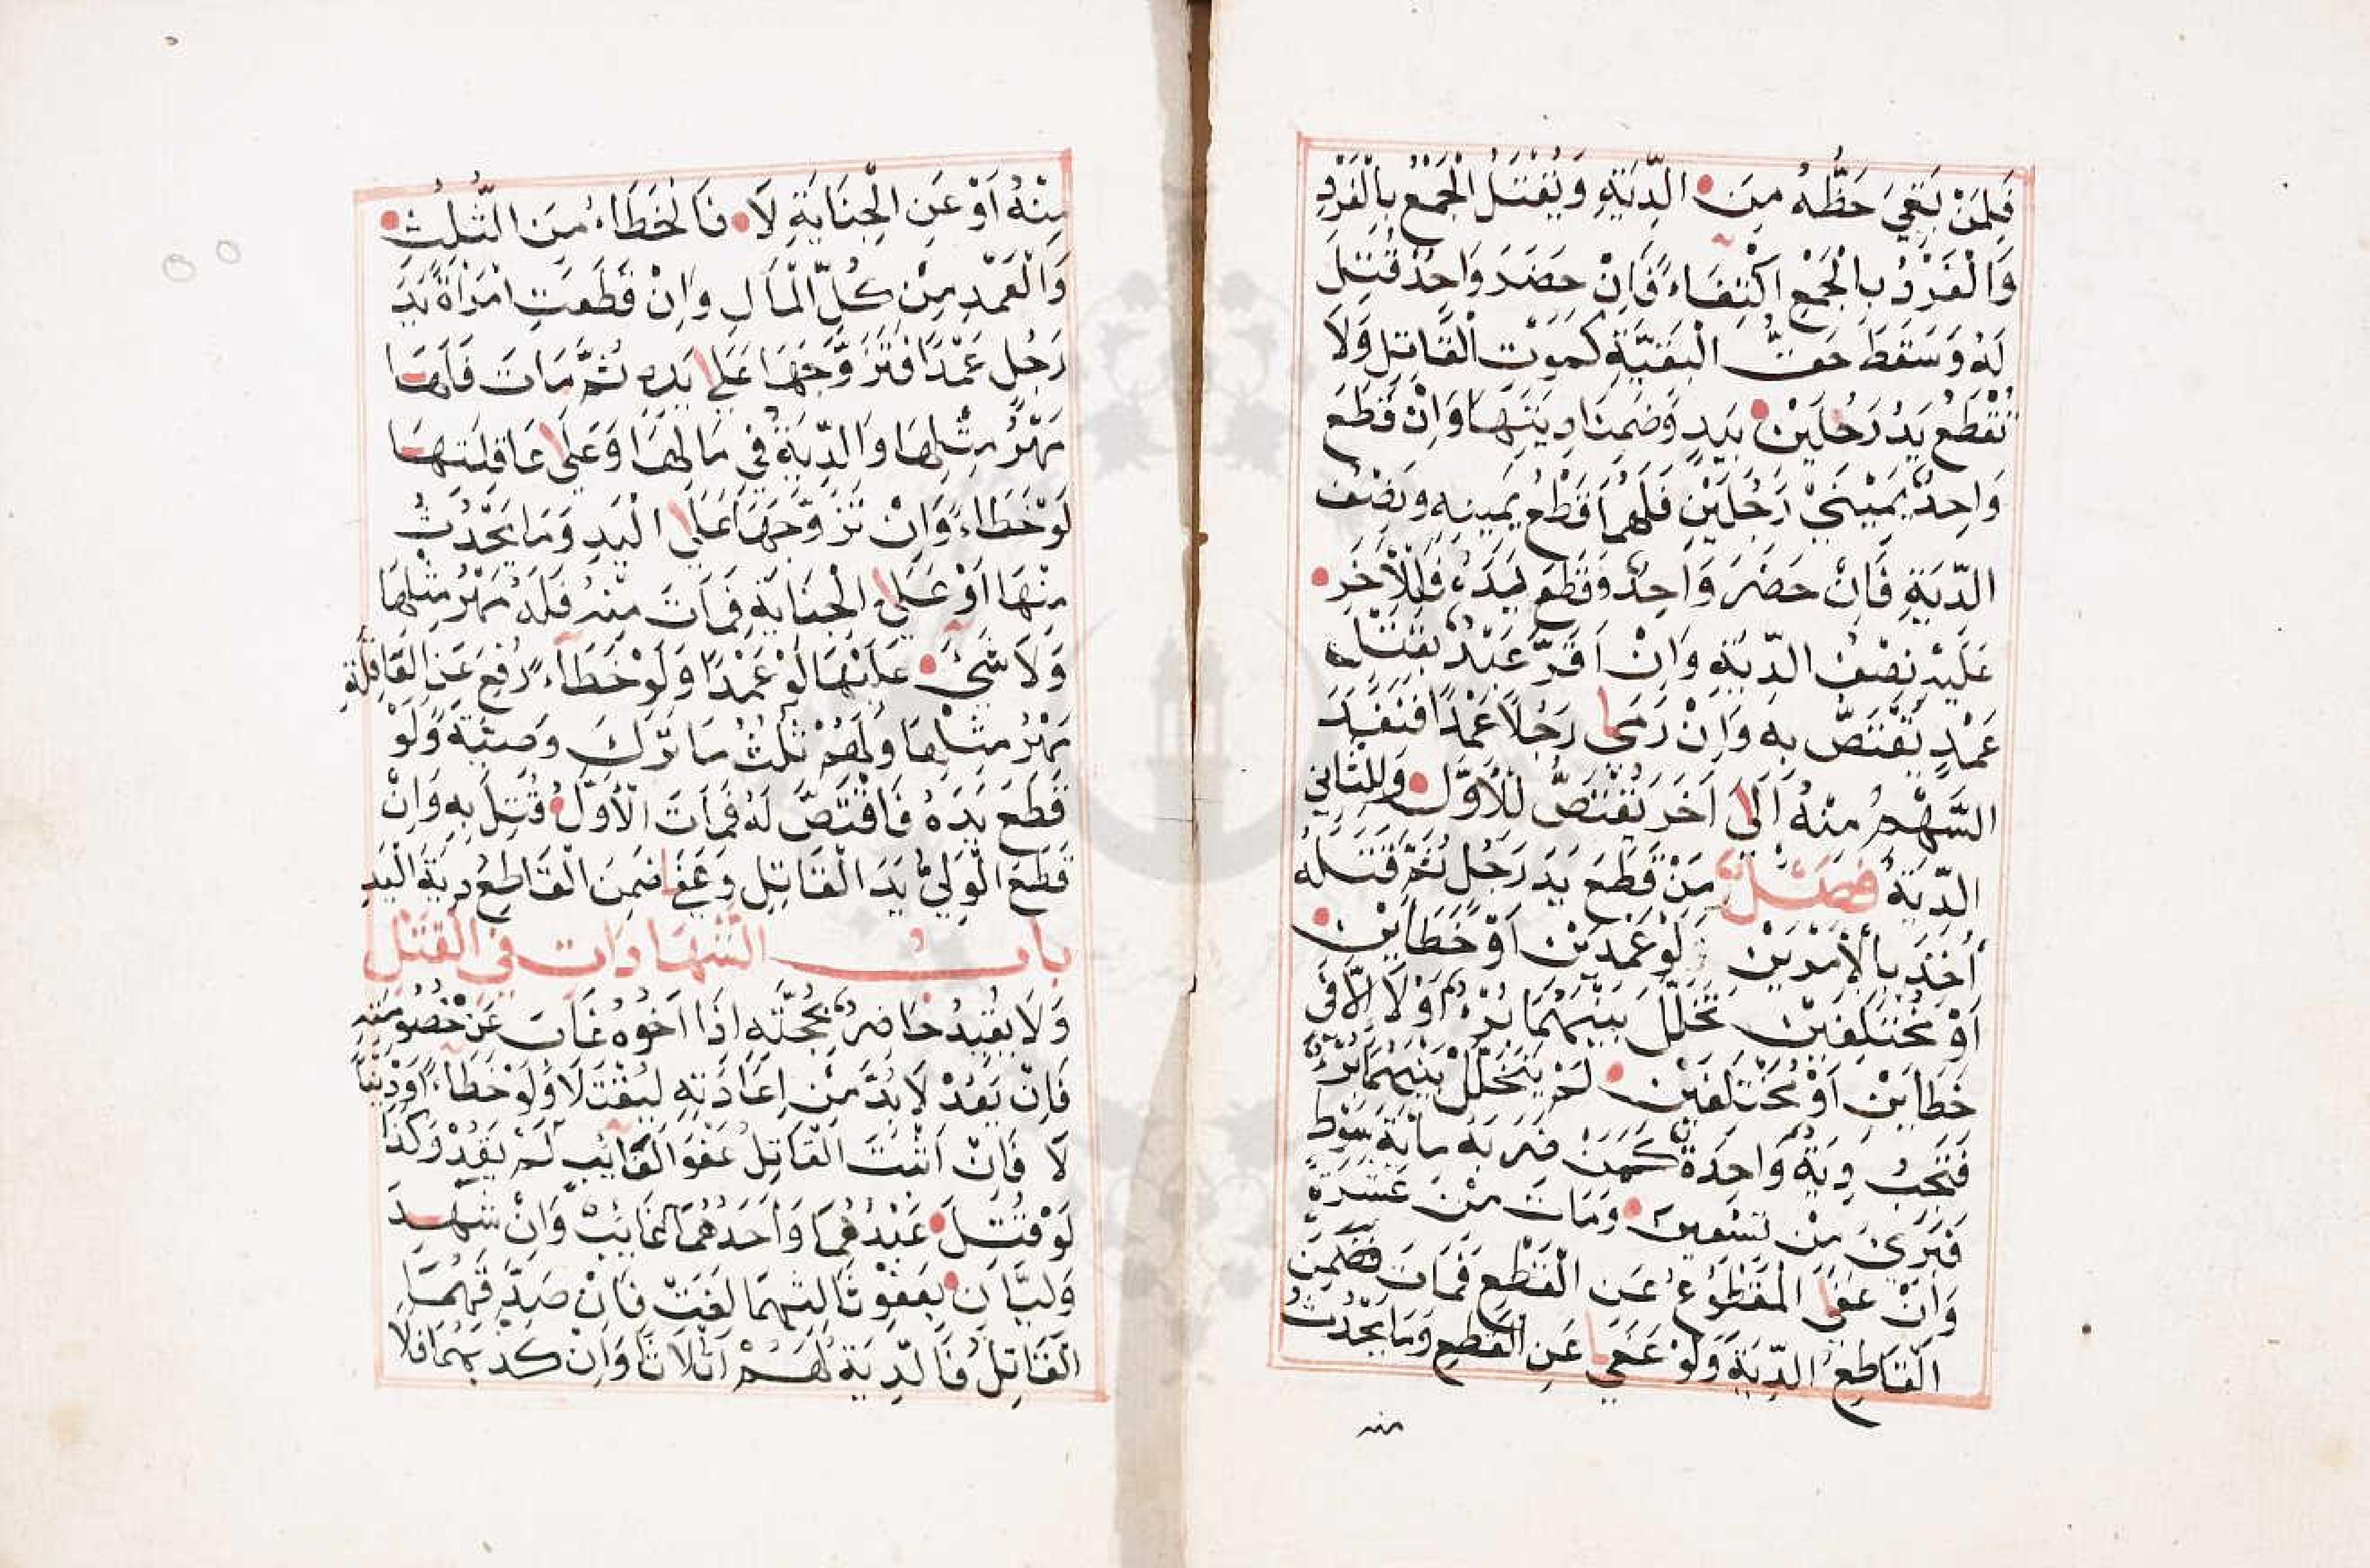 فَلِمَنْ بَقِيَ حَظُّهُ مِنَ الدِّيَةِ وَيُقْتَلُ الْجَمْعُ بِالْفَرْدِ
وَالْفَرْدُ بِالْجَمْعِ اكْتِفَاءً فَاِنْ حَضَرَ وَاحِدٌ قُتِلَ
لَهُ وَسَقَطَ حَقُّ الْبَقِيَّةِ كَمَوْتِ الْقَاتِلِ وَلَا
تُقْطَعُ يَدُ رَجُلَيْنِ بِيَدٍ وَضَمِنَا دِيَتَهَا وَاِنْ قَطَعَ
وَاحِدٌ يَمِيْنَيْ رَجُلَيْنِ فَلَهُمَا قَطْعُ يَمِينِهِ وَنِصْفُ
الدِّيَةِ فَاِنْ حَضَرَ وَاحِدٌ وَقَطَعَ يَدَهُ فَلِلْاٰخَرِ
عَلَيْهِ نِصْفُ الدِّيَةِ وَاِنْ اَقَرَّ عَبْدٌ بِقَتْلِ
عَمْدٍ يُقْتَصُّ بِهِ وَاِنْ رَمَى رَجُلًا عَمْدًا فَنَفَذَ
السَّهْمُ مِنْهُ اِلَى اٰخَرَ يُقْتَصُّ لِلْاَوَّلِ وَلِلثَّانِي
الدِّيَةُ فَصْلٌ مَنْ قَطَعَ يَدَ رَجُلٍ ثُمَّ قَتَلَهُ
أُخِذَ بِالْأَمْرَيْنِ لَوْ عَمْدَيْنِ اَوْ خَطَايَنِ
اَوْ مُخْتَلِفَيْنِ تَخَلَّلَ بَيْنَهُمَا بُرْءٌ اَوْ لَا اِلَّا فِي
خَطَايَنِ اَوْ مُخْتَلِفَيْنِ لَمْ يَتَخَلَّلْ بَيْنَهُمَا بُرْءٌ
فَتَجِبُ دِيَةٌ وَاحِدَةٌ كَمَنْ ضَرَبَهُ مِائَةَ سَوْطٍ
فَبَرِئَ مِنْ تِسْعِينَ وَمَاتَ مِنْ عَشَرَةٍ
وَاِنْ عَفَى الْمَقْطُوعُ عَنِ الْقَطْعِ فَمَاتَ ضَمِنَ
الْقَاطِعُ الدِّيَةَ وَلَوْ عَفَى عَنِ الْقَطْعِ وَمَا يَحْدُثُ
منه
مِنْهُ اَوْ عَنِ الْجِنَايَةِ لَا فَالْخَطَاءُ مِنَ الثُّلُثِ
وَالْعَمْدِ مِنْ كُلِّ الْمَالِ وَاِنْ قَطَعَتِ امْرَاَةٌ يَدَ
رَجُلٍ عَمْدًا فَتَزَوَّجَهَا عَلَى يَدِهِ ثُمَّ مَاتَ فَلَهَا
مَهْرُ مِثْلِهَا وَالدِّيَةُ فِي مَالِهَا وَعَلَى عَاقِلَتِهَا
لَوْ خَطَاءً وَاِنْ تَزَوَّجَهَا عَلَى الْيَدِ وَمَا يَحْدُثُ
مِنْهَا اَوْ عَلَى الْجِنَايَةِ فَمَاتَ مِنْهُ فَلَهَ مَهْرُ مِثْلِهَا
وَلَا شَيْءَ عَلَيْهَا لَوْ عَمْدًا وَلَوْ خَطَاءً رُفِعَ عَنِ الْعَاقِلَةِ
مَهْرُ مِثْلِهَا وَلَهُمْ ثُلُثُ مَا تَرَكَ وَصِيَّةً وَلَوْ
قَطَعَ يَدَهُ فَاقْتُصَّ لَهُ فَمَاتَ الْاَوَّلُ قُتِلَ بِهِ وَاِنْ
قَطَعَ الْوَلِيُّ يَدَ الْقَاتِلِ وَعَفَا ضَمِنَ الْقَاطِعُ دِيَةَ الْيَدِ
بابُ الشَّهَادَاتِ فِي الْقَتْلِ
وَلَا يُقِيدُ حَاضِرٌ بِحُجَّتِهِ اِذَا اَخُوهُ غَابَ عَنْ خُصُومَتِهِ
فَاِنْ يَعُدْ لَا بُدَّ مِنْ اِعَادَتِهِ لِيُقْتَلَا وَلَوْ خَطَاءً اَوْ دَيْنًا
لَا فَاِنْ اَثْبَتَ الْقَاتِلُ عَفْوَ الْغَائِبِ لَمْ يَعُدْ وَكَذَا
لَوْ قُتِلَ عَبْدُهُمَا وَاَحَدُهُمَا غَايِبٌ وَاِنْ شَهِدَ
وَلِيَّانِ بِعَفْوِ ثَالِثِهِمَا لَغَتْ فَاِنْ صَدَّقَهُمَا
الْقَاتِلُ فَالدِّيَةُ لَهُمْ اَثْلَاثًا وَاِنْ كَذَّبَهُمَا فَلَا